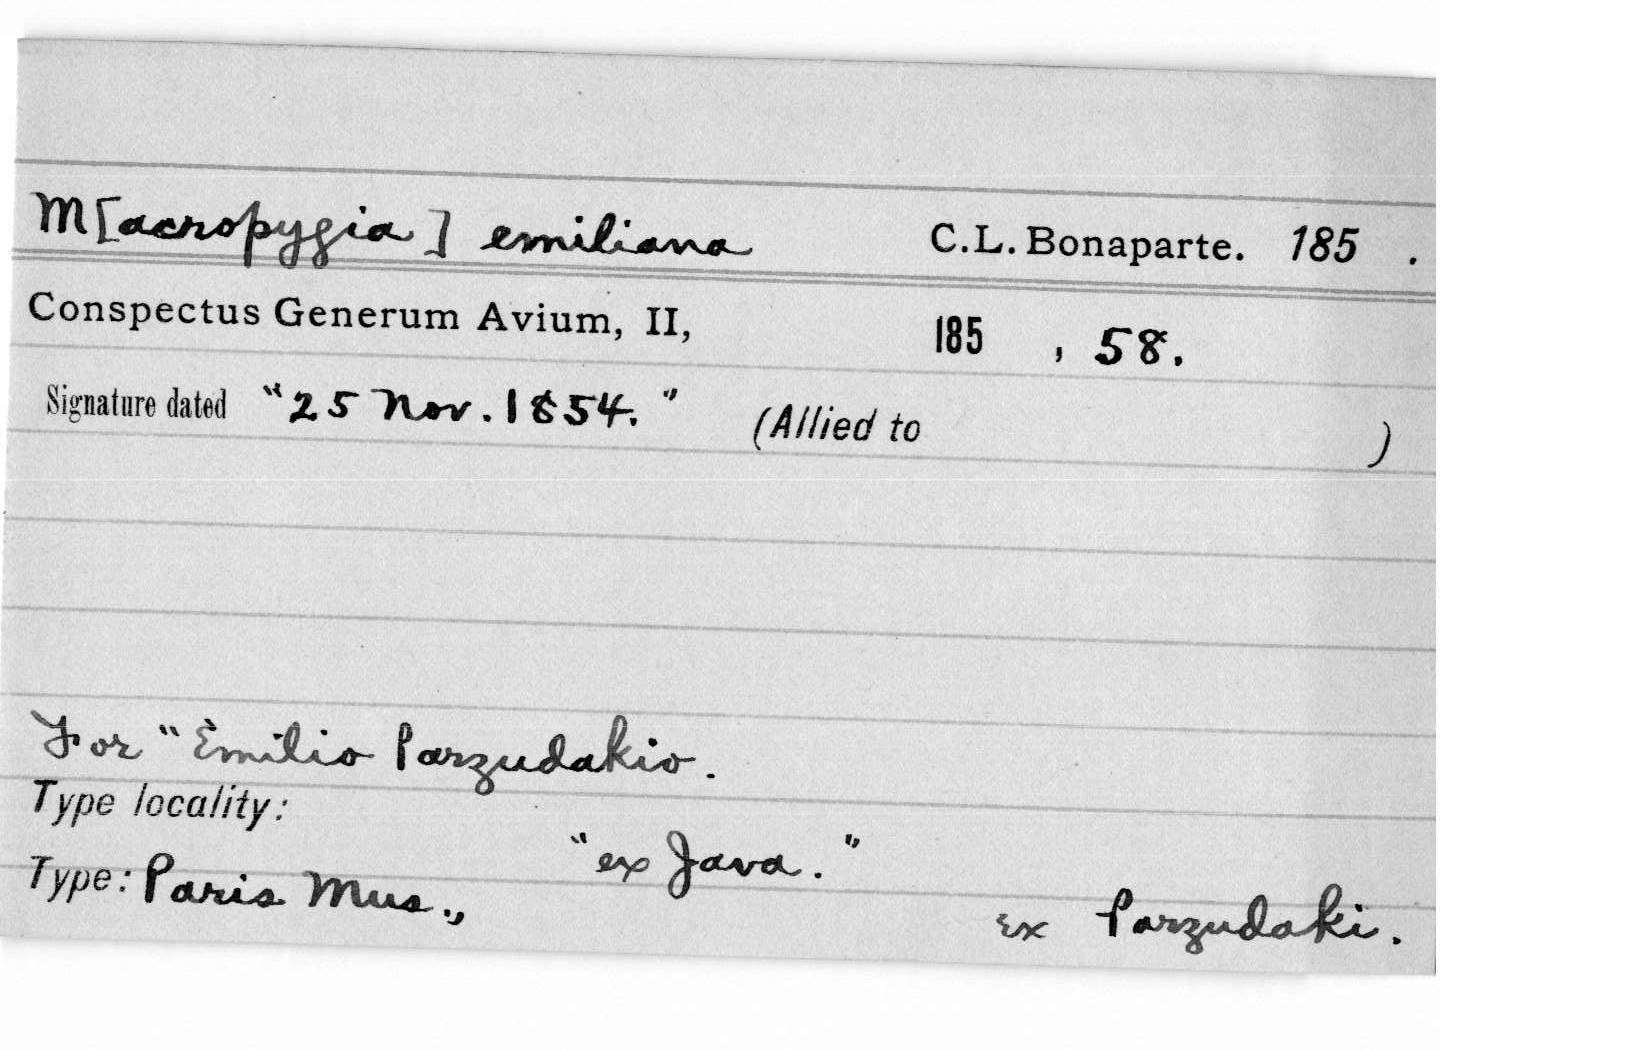 M[acropygia] emiliana C.L. Bonaparte. 185 .
Conspectus Generum Avium, II, 185 , 58.
Signature dated "25 Nov. 1854." (Allied to )
For "Emilio Parzudakio.
Type locality:
"ex Java."
Type: Paris Mus., ex Parzudaki.